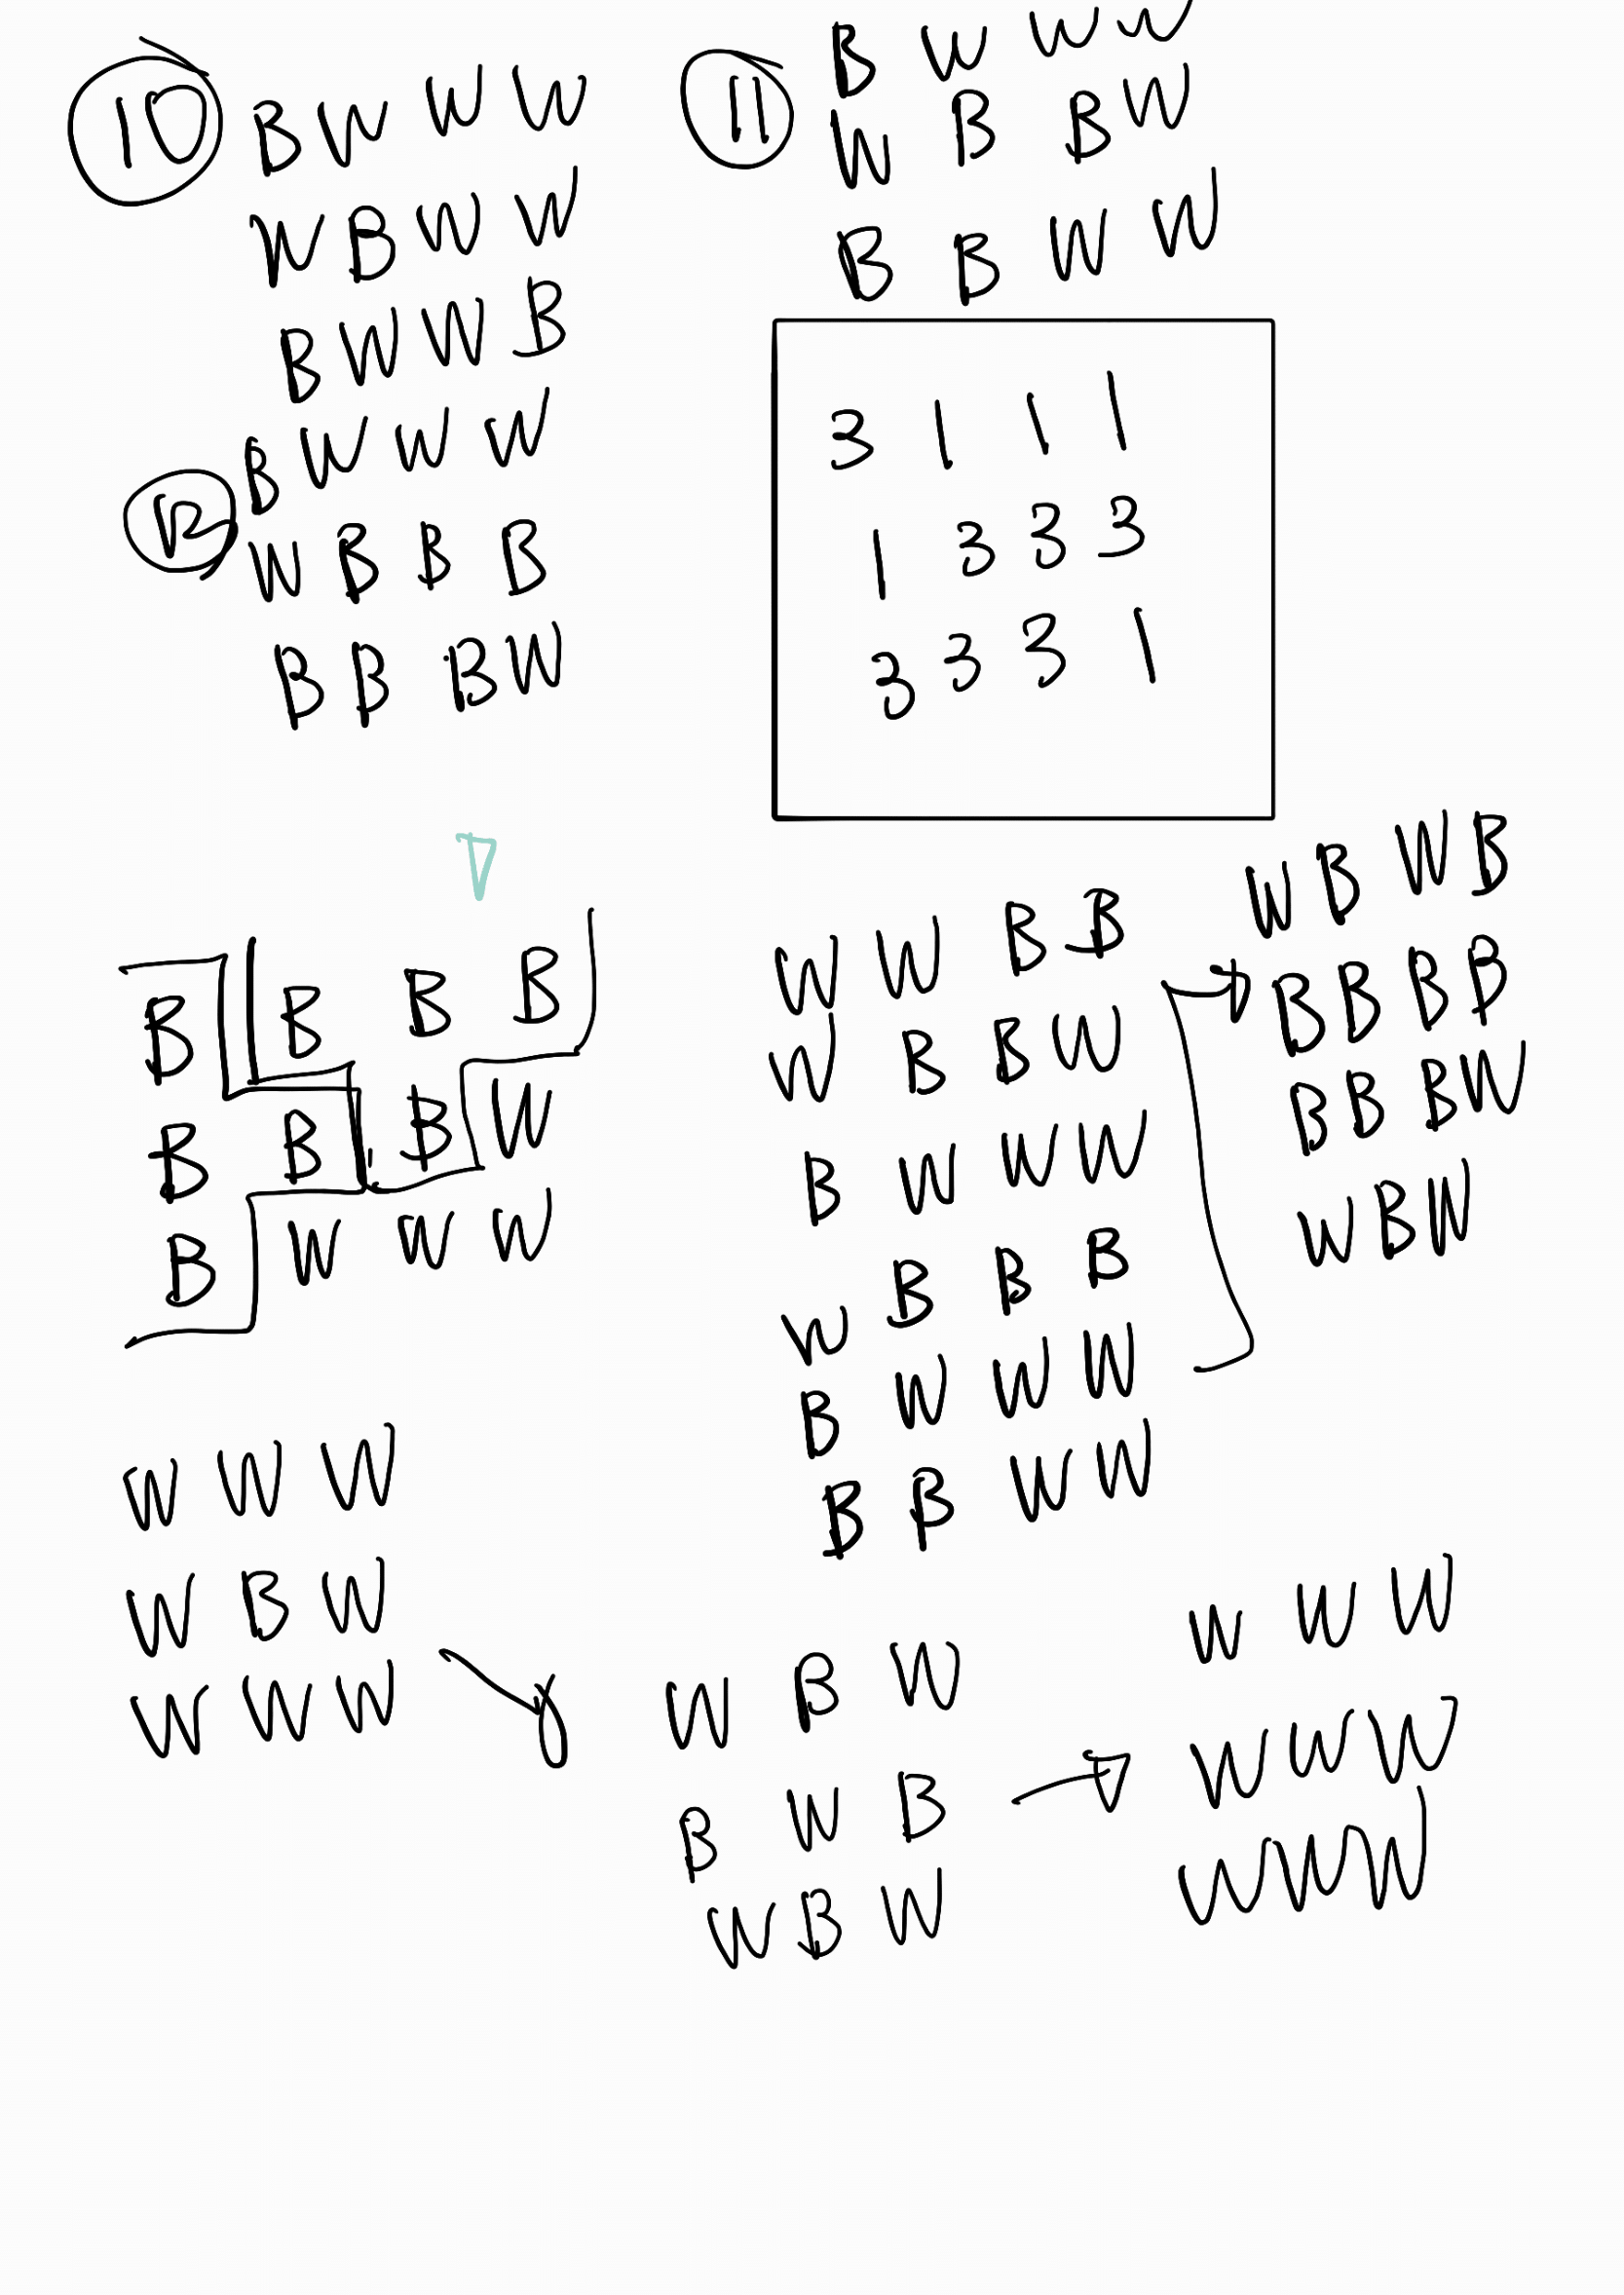 10 B W W W
W B W W
B W W B
11 B W W W
W B B W
B B W W
12 B W W W
W B B B
B B B W
3 1 1 1
1 3 3 3
3 3 3 1
B B B B
B B B W
B W W W
W W B B
W B B W
B W W W
W B B B
B W W W
B B W W
W B W B
B B B B
B B B W
W B W
W W W
W B W
W W W
W B W
B W B
W B W
W W W
W W W
W W W